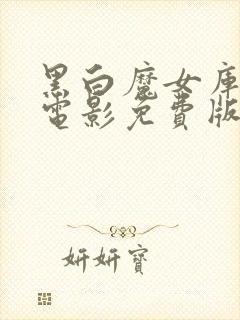 黑白魔女庫
電影免費版
妍妍寶